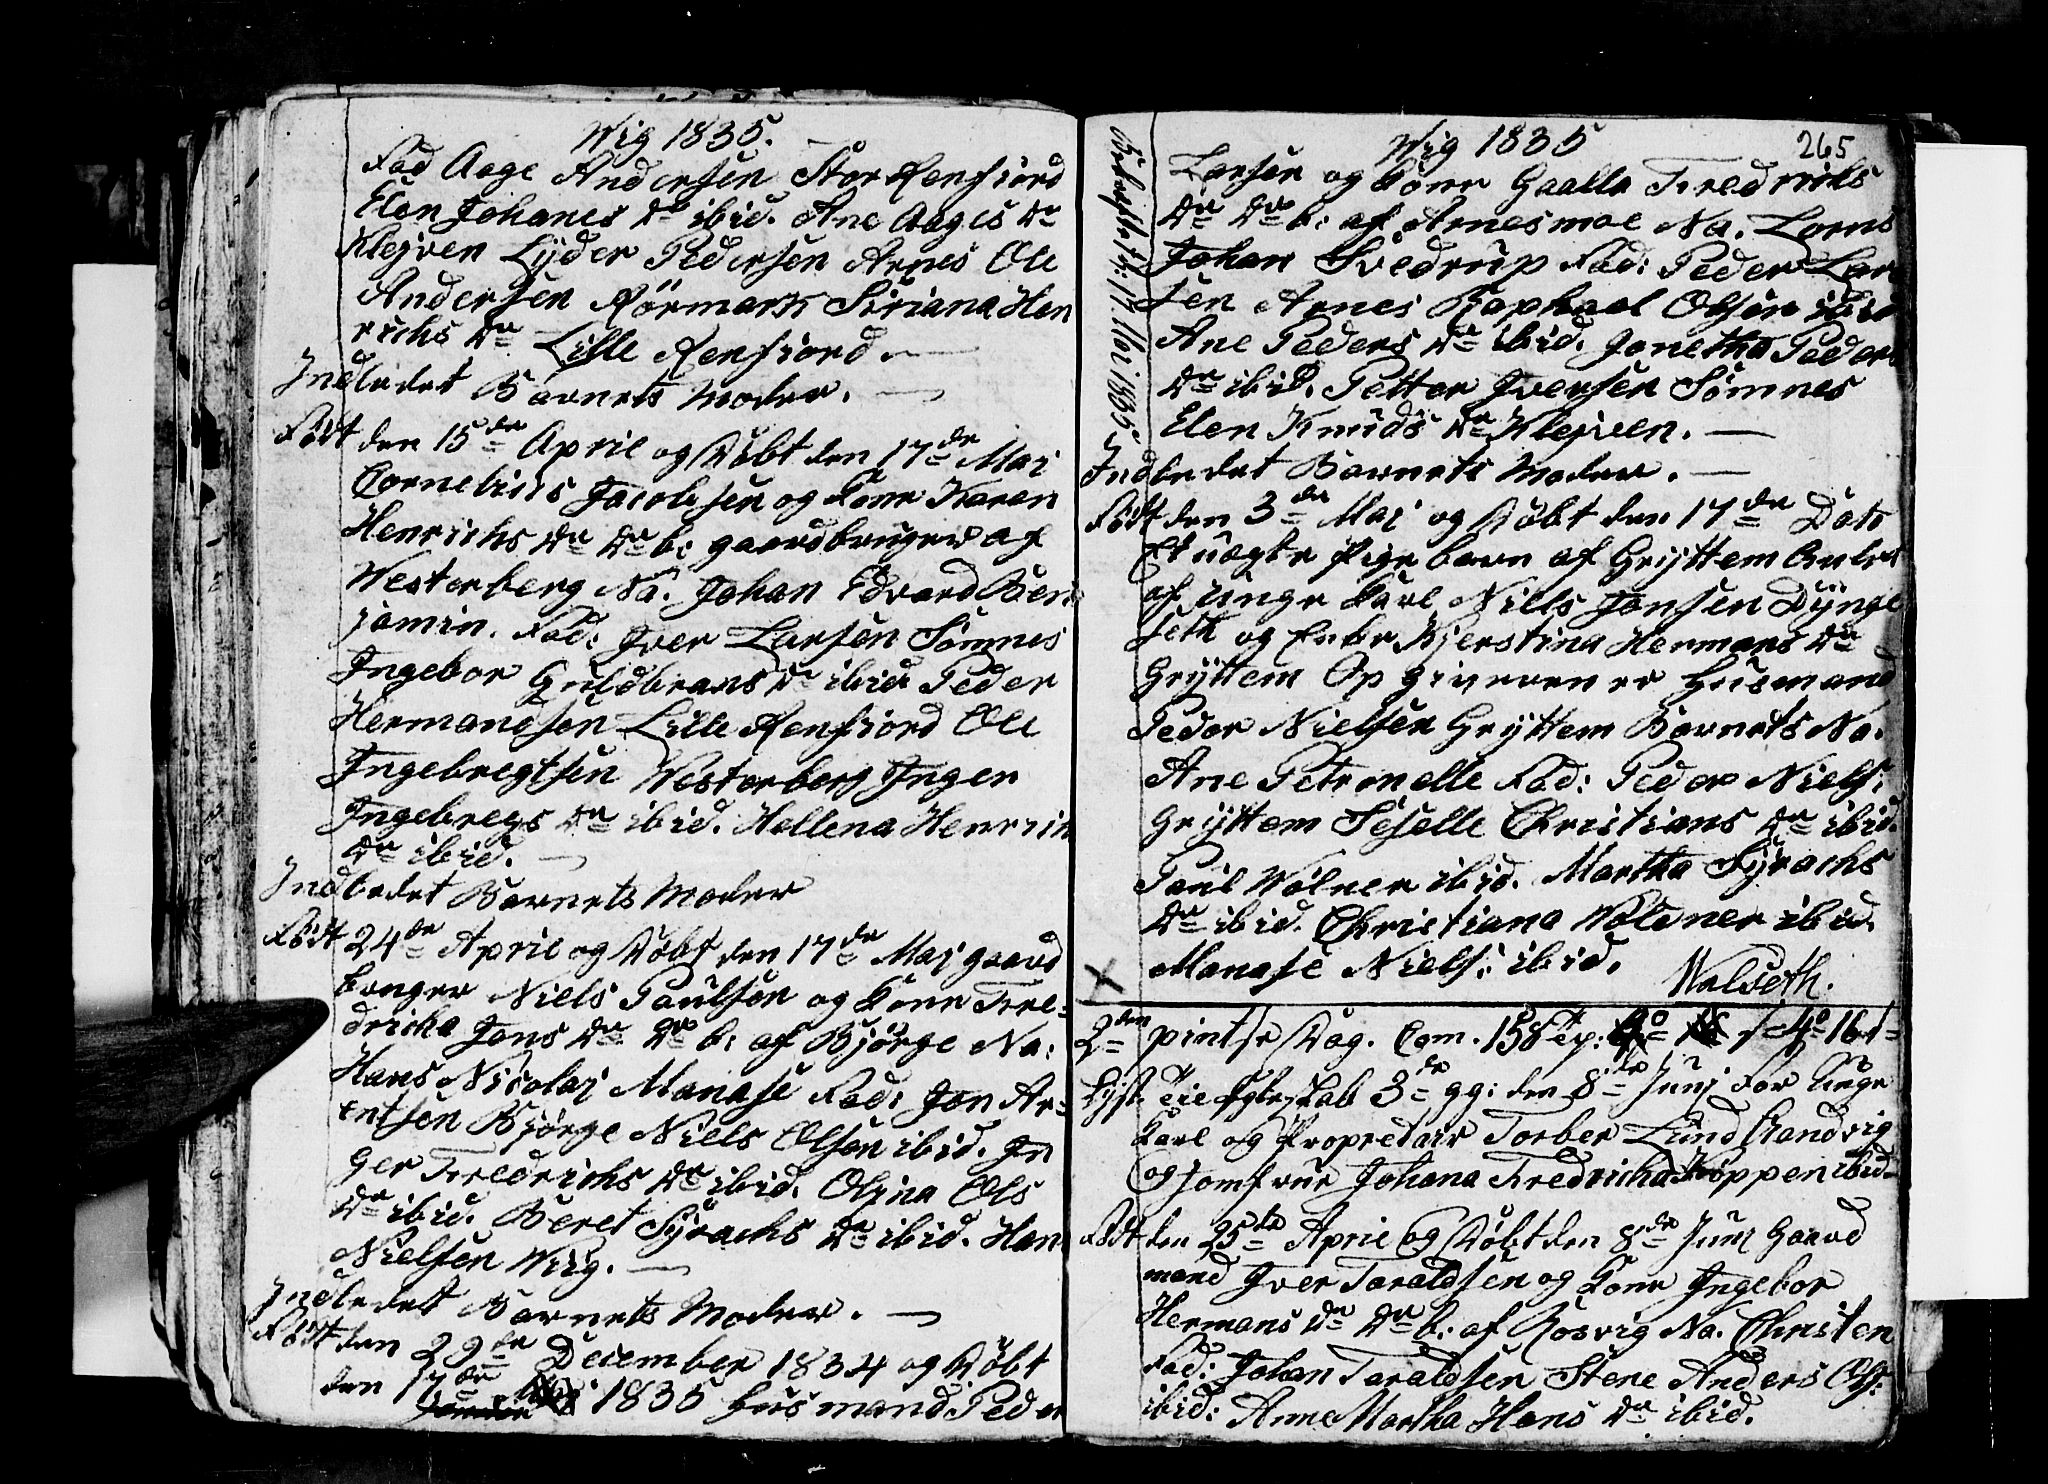 Wig 1835.
Fad Aage Andersen Stor Renfiord
Elen Johanes Dr ibid. Ane Aages Dr
Klejven Lyder Pedersen Arnes Ole
Andersen Rörmark Siriana Hen
richs Dr Lille Renfiord.
Indledet Barnets Moder.
Födt den 15de April og Döbt den 17de Maj
Cornelius Jacobsen og Kone Karen
Henrichs Dr Dr b: gaardbruger af
Westerberg Na. Johan Edvard Ben
jamin. Fad: Iver Larsen Sömnes
Ingebor Guldbrans Dr ibid Peder
Hermandsen Lille Renfiord Ole
Ingebregtsen Westerberg Inger
Ingebregs Dr ibid. Hellena Henrich
Dr ibid.
Indledet Barnets Moder
Födt 24de April og Döbt den 17de Maj gaard
bruger Niels Paulsen og Kone Fre=
dricha Jons Dr Dr b: af Bjørge Na:
Hans Nicolaj Manase Fad: Jon Ar=
entsen Bjørge Niels Olsen ibid. In
ger Fredrichs Dr ibid. Olina Ols
Dr ibid. Beret Syrachs Dr ibid. Hans
Nielsen Wiig.
Indledet Barnets Moder.
Födt den 29de December 1834 og Döbt
den 17de Maj 1835 Husmand Peder
Wig 1835
265
Larsen og Kone Gaalla Fredrichs
Dr Dr b: af Arnesmoe Na. Lorns
Johan Svedrup Fad: Peder Lar
sen Arnes Raphael Olsen ibid
Ane Peders Dr ibid. Jonetha Peders
Dr ibid. Petter Iversen Sömnes
Elen Knuds Dr Klejven.
Indledet Barnets Moder.
Födt den 3de Maj og Döbt den 17de Dato
Et uægte Pige barn af Gryttem Avlet
af unge Karl Niels Jonsen Dynge
seth og Enke Kjerstina Hermans Dr
Gryttem Opgiveren er Husmand
Peder Nielsen Gryttem Barnets Na.
Ane Petronelle Fad: Peder Niels:
Gryttem Seselle Christians Dr ibid.
Paul Wolner ibid. Martha Syrachs
Dr ibid. Christiana Woldner ibid.
Manase Niels: ibid.
Walseth.
2den pintse Dag. Com. 158
3de gg: den 8de Junj For Unge
Karl og Propretair Torber Lund Randvig
og Jomfrue Johana Fredricha Köppen ibid
Födt den 25de April og Döbt den 8de Junj Gaard
mand Iver Taraldsen og Kone Ingebor
Hermans Dr Dr b: af Rosvig Na. Christen
Fad: Johan Taraldsen Stene Anders Ols:
ibid: Anne Martha Hans Dr ibid.